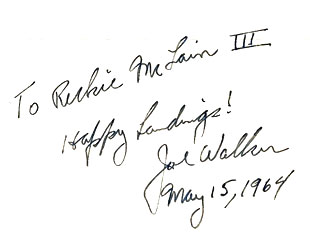 To Richie McLain III
Happy Landings!
Joe Walker
May 15, 1964